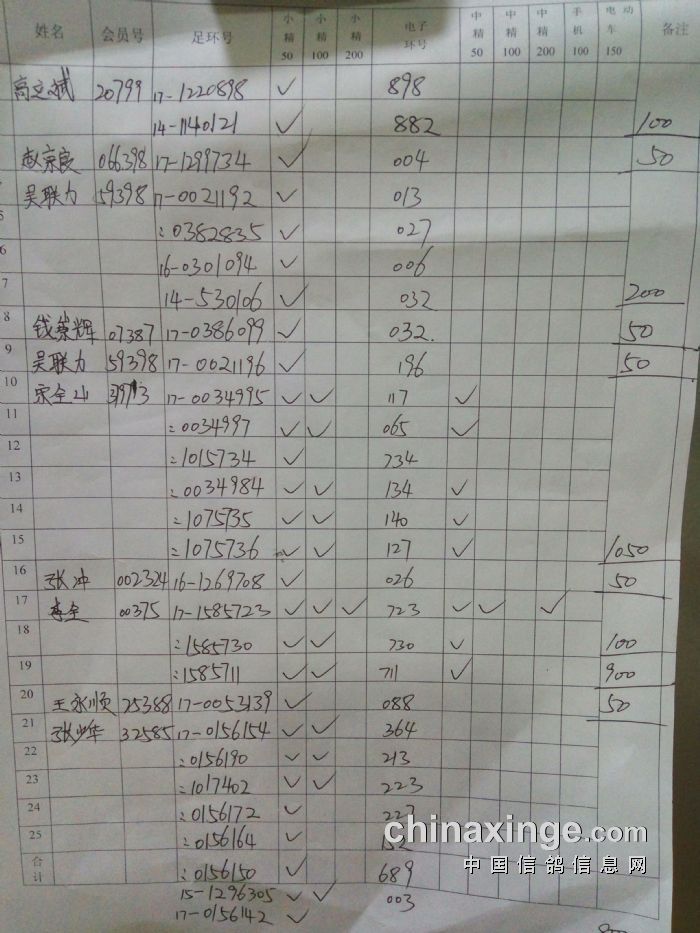 姓名 会员号 足环号 小精50 小精100 小精200 电子环号 中精50 中精100 中精200 手机100 电动车150 备注
高立斌 20799 17-1220898 ✓ 898
14-1140121 ✓ 882 100
赵宗良 066398 17-1299734 ✓ 004 50
吴联力 59398 17-0021192 ✓ 013
5 :0382835 ✓ 027
6 16-0301094 ✓ 006
7 14-530106 ✓ 032 200
8 钱崇辉 07387 17-0386099 ✓ 032. 50
9 吴联力 59398 17-0021196 ✓ 196 50
10 宋全山 17-0034995 ✓ ✓ 117 ✓
11 :0034997 ✓ ✓ 065 ✓
12 :1015734 ✓ 734
13 :0034984 ✓ ✓ 134 ✓
14 :1075735 ✓ ✓ 140 ✓
15 :1075736 ✓ ✓ 127 ✓ 1050
16 张冲 002324 16-1269708 ✓ 026 50
17 李全 00375 17-1585723 ✓ ✓ ✓ 723 ✓ ✓ ✓
18 :1585730 ✓ ✓ 730 ✓ 100
19 :1585711 ✓ ✓ 711 ✓ 900
20 王永顺 25388 17-0053139 ✓ 088 50
21 张少华 32585 17-0156154 ✓ ✓ 364
22 :0156190 ✓ ✓ 213
23 :1017402 ✓ ✓ 223
24 :0156172 ✓ 227
25 :0156164 ✓ 152
合计 :0156150 ✓ 689
15-1296305 ✓ ✓ 003
17-0156142 ✓
chinaxinge.com
中国信鸽信息网